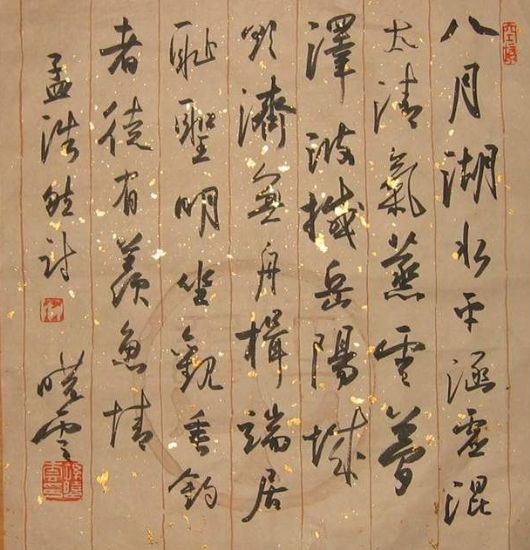 八月湖水平涵虛混
太清氣蒸雲夢
澤波撼岳陽城
欲濟無舟楫端居
耻聖明坐觀垂釣
者徒有羨魚情
孟浩然詩 晓雲